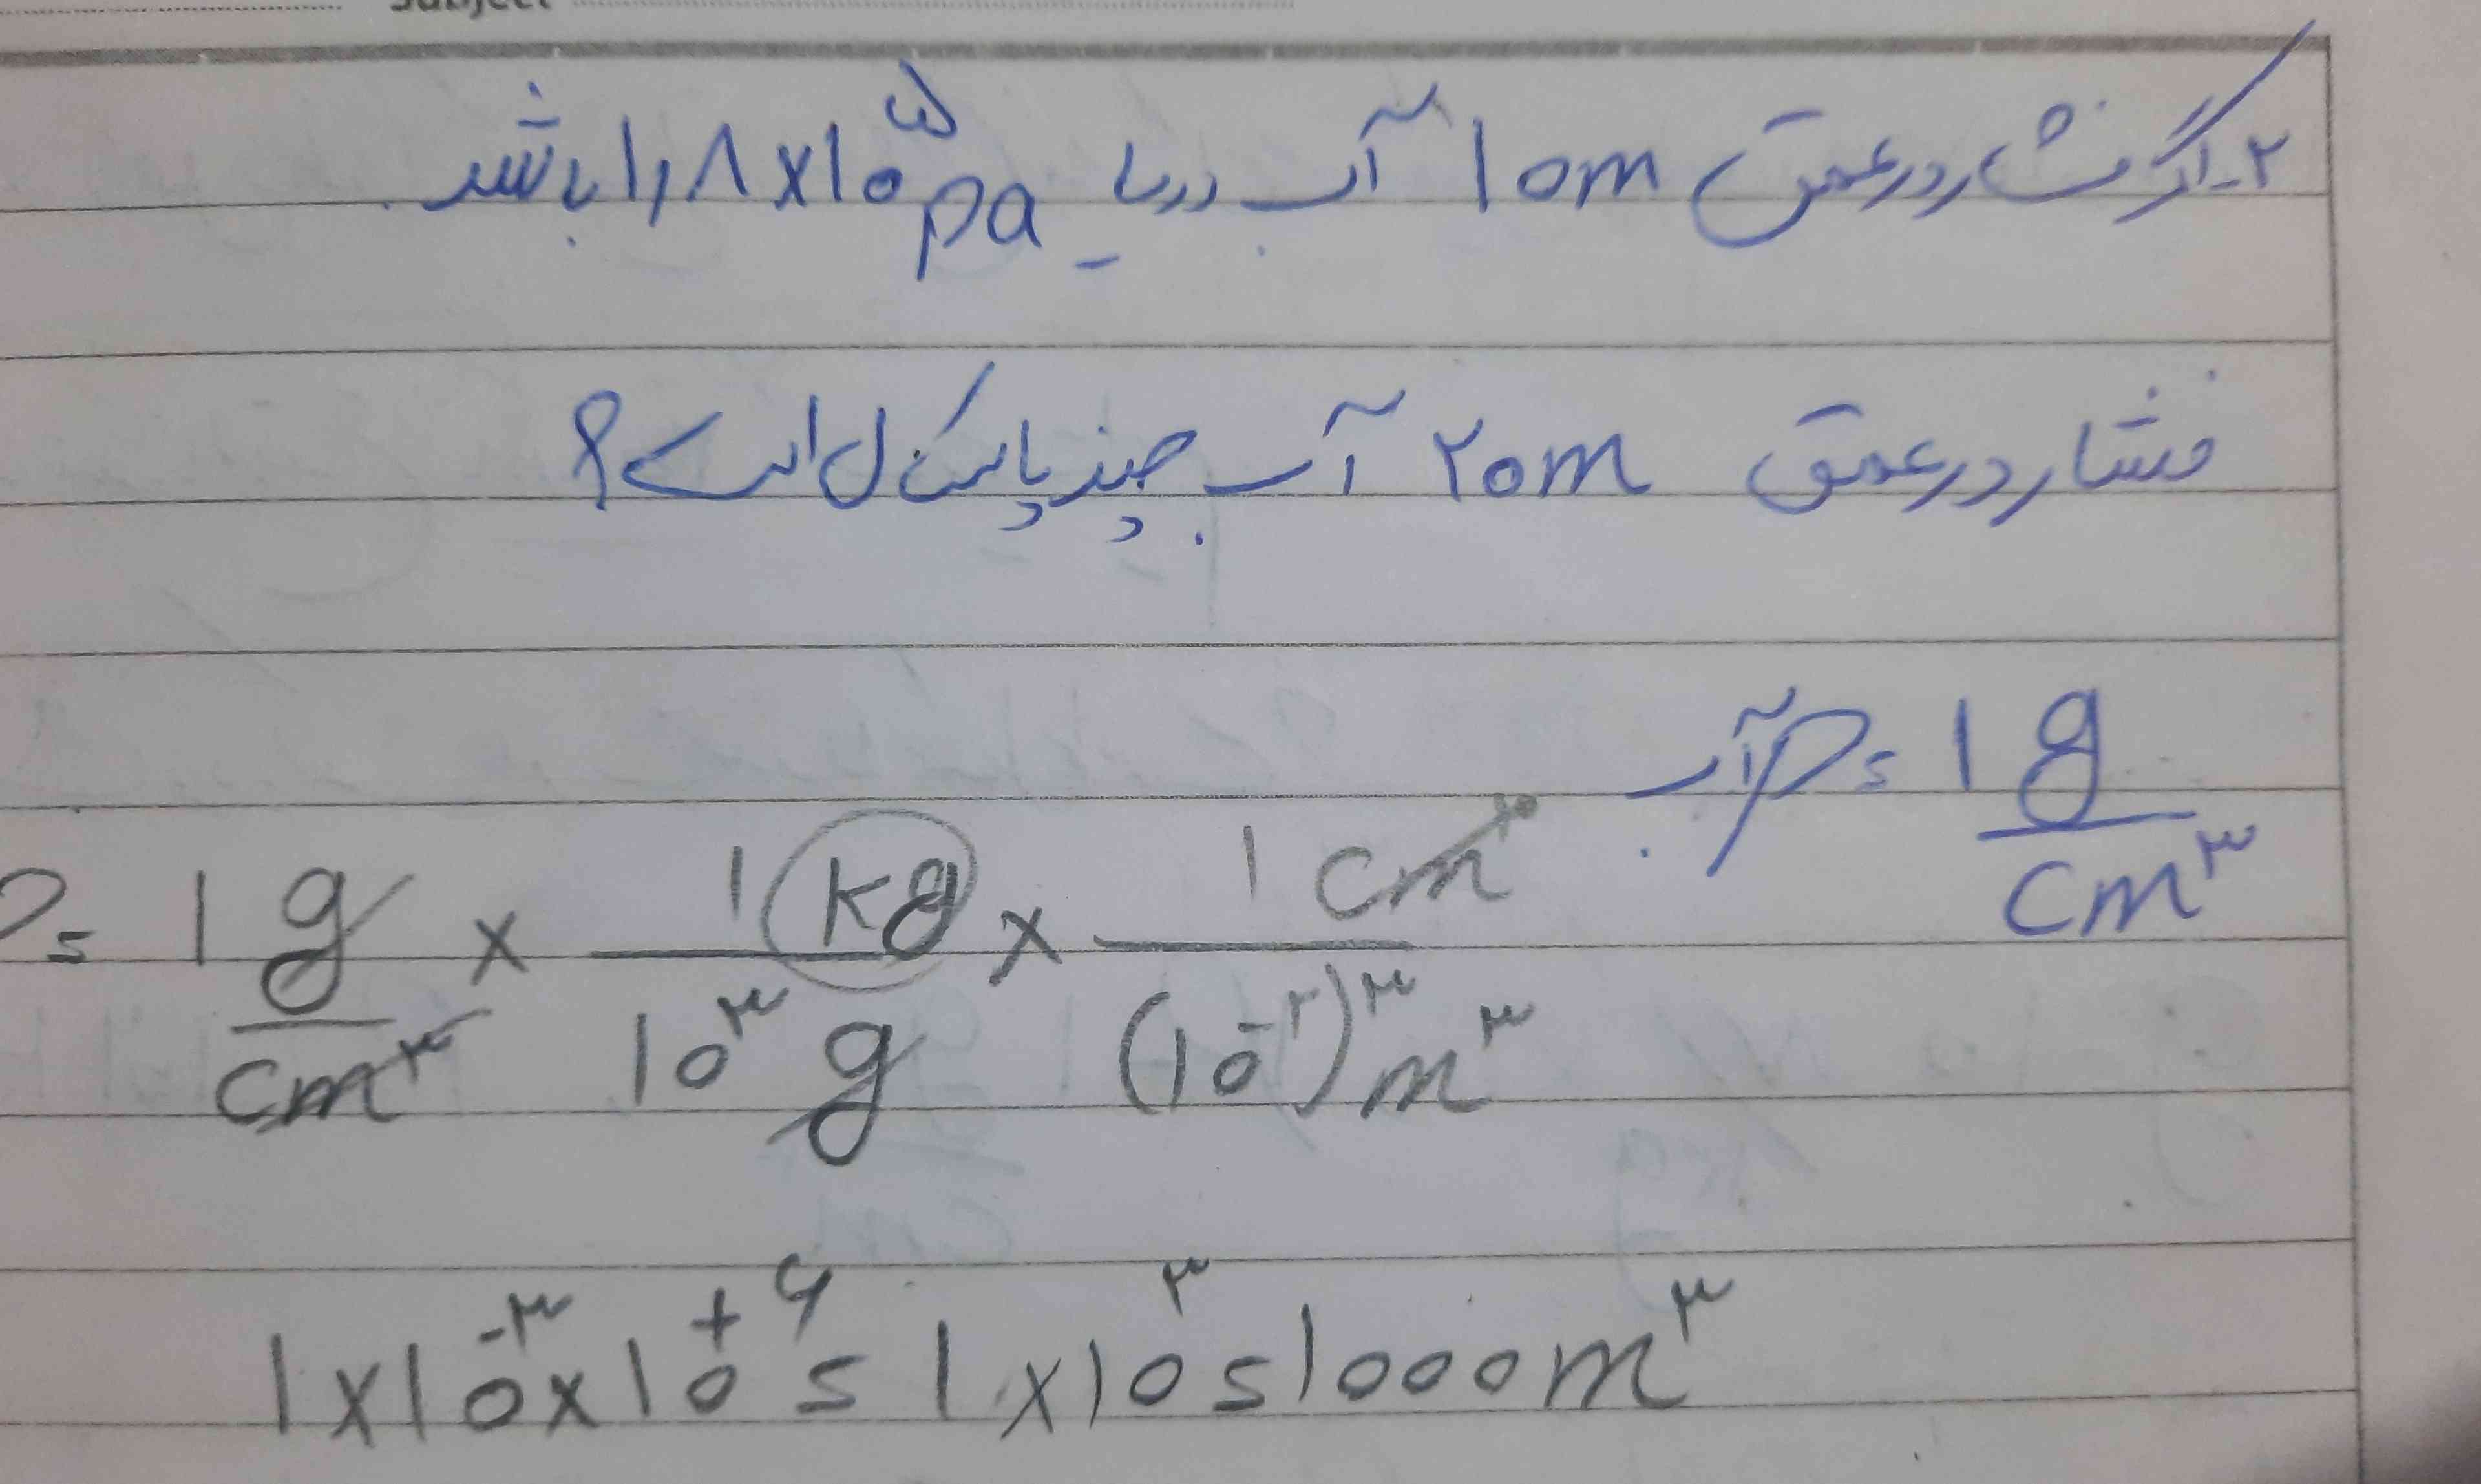 Subject
۲- اگر فشار در عمق ۱۰m آب دریا ۱٫۸×۱۰^۵ pa باشد.
فشار در عمق ۲۰m آب چند پاسکال است؟
ρ آب = ۱ g/cm^۳
ρ = ۱ g/cm^۳ × ۱ kg/۱۰^۳ g × ۱ cm^۳/(۱۰^-۲)^۳ m^۳
۱×۱۰^-۳×۱۰^+۶ = ۱×۱۰^۳ = ۱۰۰۰ m^۳